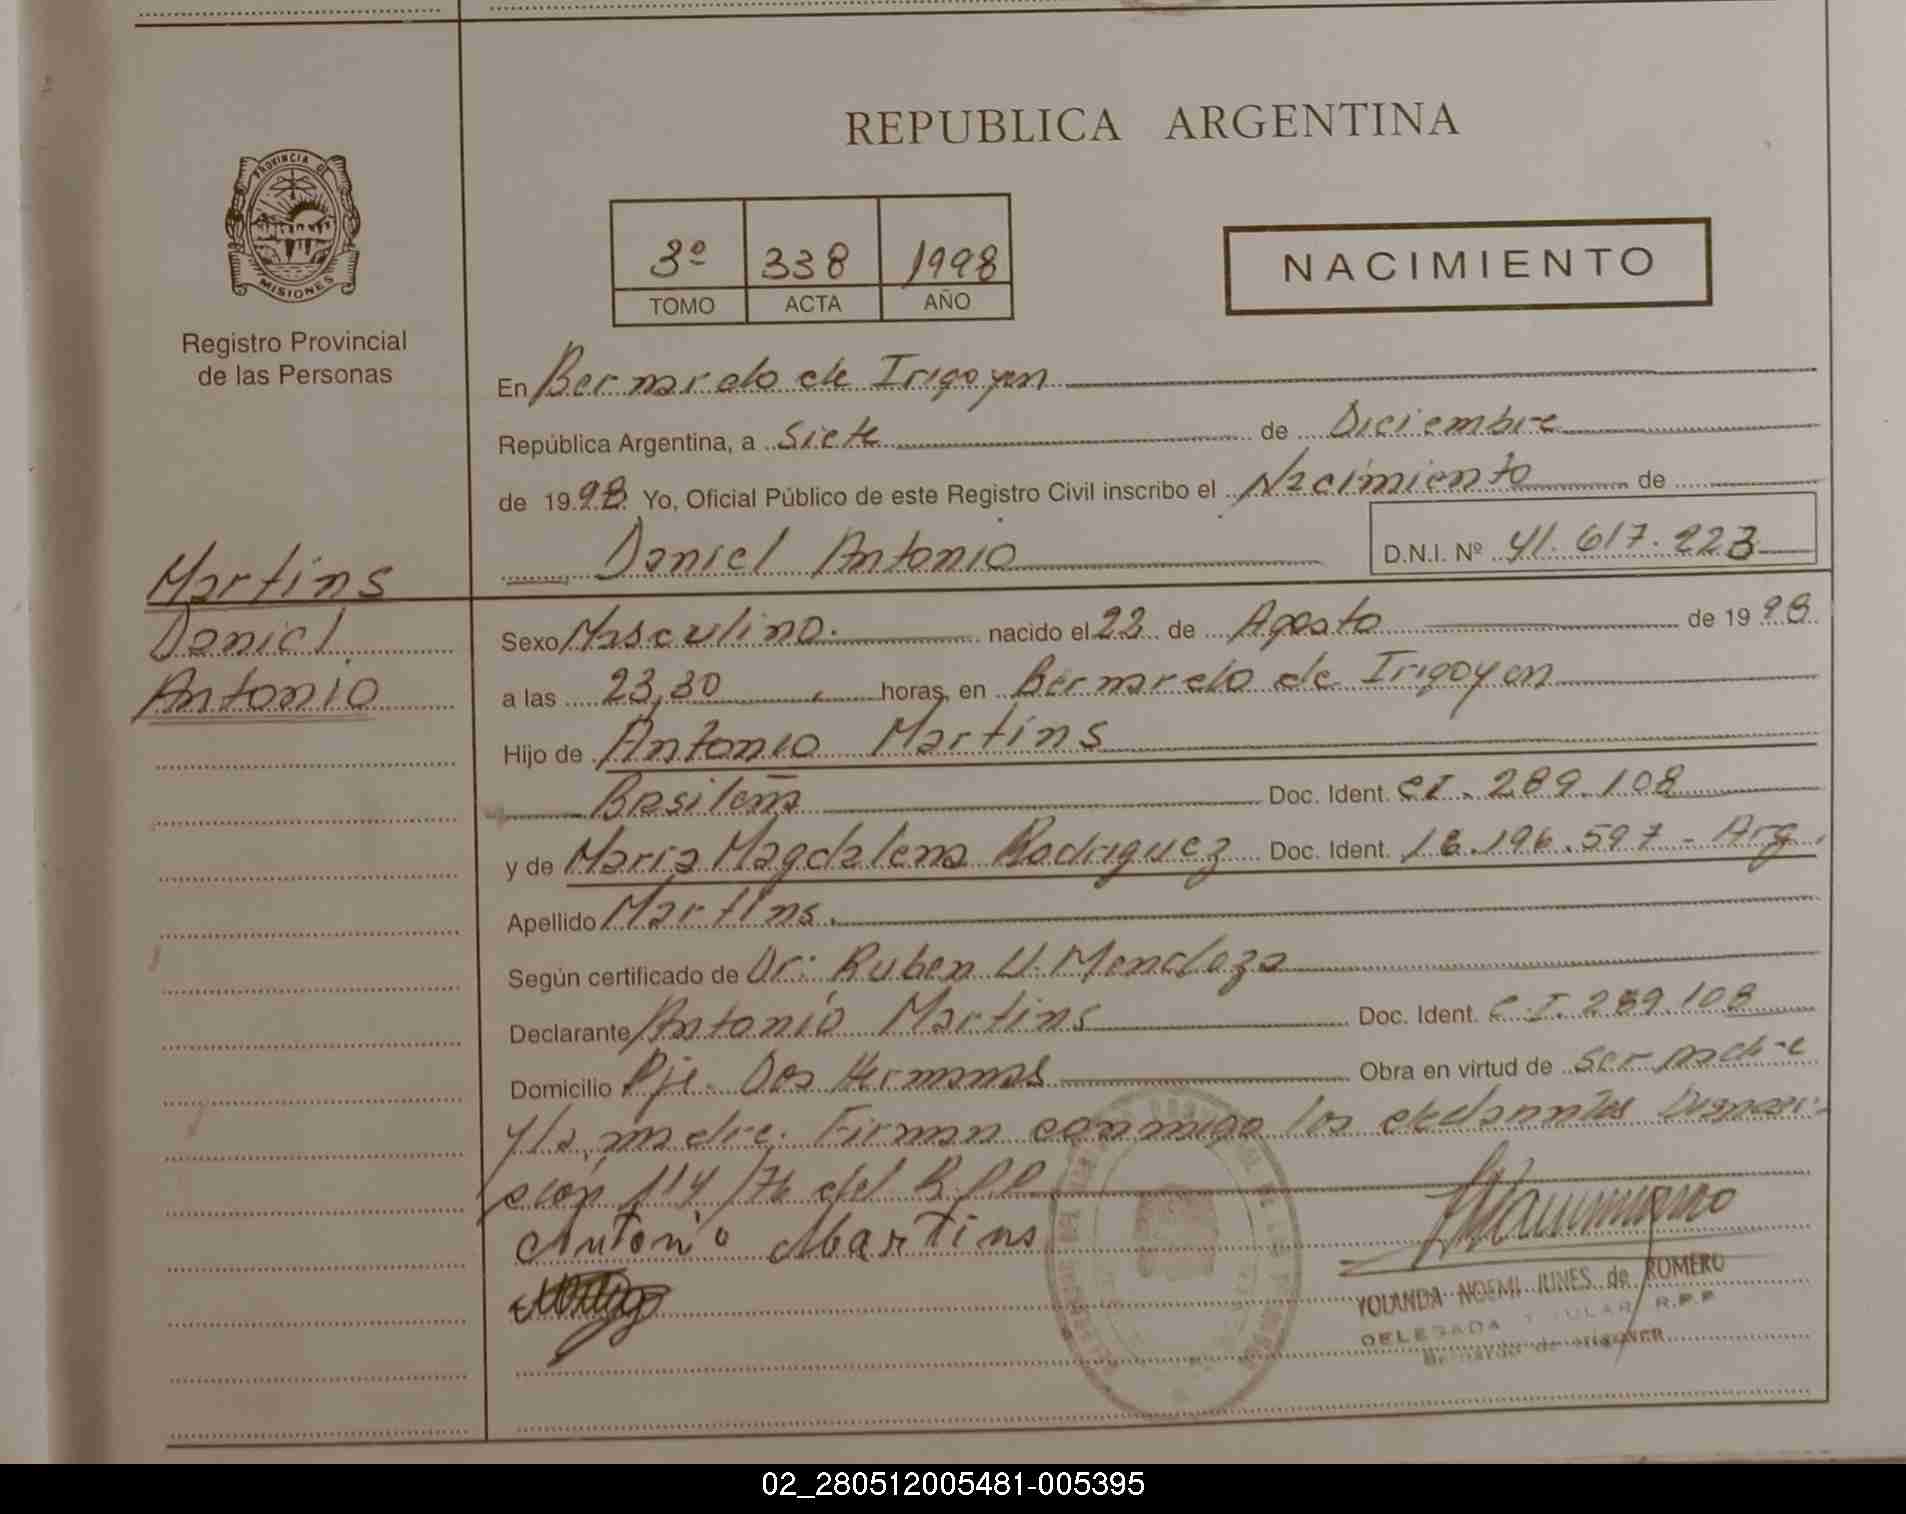 REPUBLICA ARGENTINA
PROVINCIA DE
MISIONES
Registro Provincial
de las Personas
3º 338 1998
TOMO ACTA AÑO
NACIMIENTO
En Bernardo de Irigoyen
República Argentina, a Siete de Diciembre
de 1998 Yo, Oficial Público de este Registro Civil inscribo el Nacimiento de
Daniel Antonio D.N.I. Nº 41.617.223
Martins
Daniel
Antonio
Sexo Masculino. nacido el 23 de Agosto de 1998
a las 23,30 horas, en Bernardo de Irigoyen
Hijo de Antonio Martins
Brasileña Doc. Ident. CI. 289.108
y de Maria Magdalena Rodriguez Doc. Ident. 18.196.597 - Arg.
Apellido Martins.
Según certificado de Dr: Ruben U. Mendoza
Declarante Antonio Martins Doc. Ident. C.I. 289.108
Domicilio Pje. Dos Hermanas Obra en virtud de ser padre
y la madre. Firman conmigo los declarantes Disposi-
cion 114/76 del R.P.P.
Antonio Martins
YOLANDA NOEMI JUNES de ROMERO
DELEGADA TITULAR R.P.P.
Bernardo de Irigoyen
02_280512005481-005395